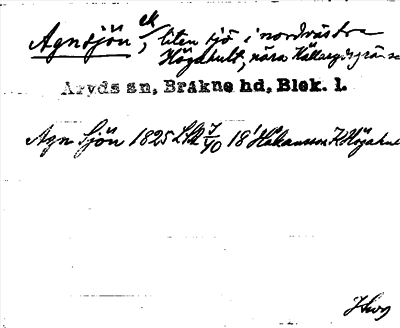 Agnsjön, ek, liten sjö i nordvästra
Högahult, nära Hällarydsgränsen
Åryds sn, Bräkne hd, Blek. l.
Agn Sjön 1825 LSA 18 Håkansson K Högahult